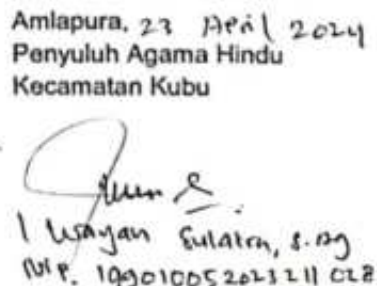 Amlapura, 23 April 2024
Penyuluh Agama Hindu
Kecamatan Kubu
I Wayan Sulatra, S.Ag
NIP. 199010052023211028